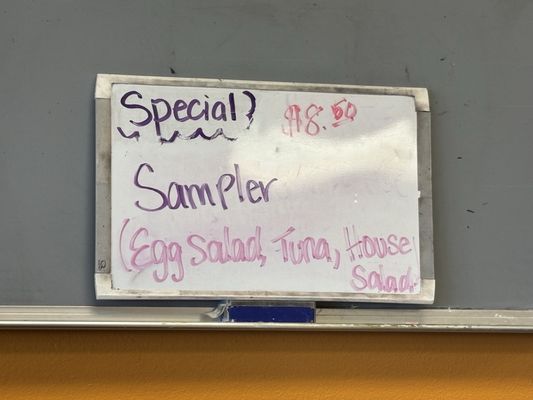 Special} $18.50
Sampler
(Egg Salad, Tuna, House
Salad.